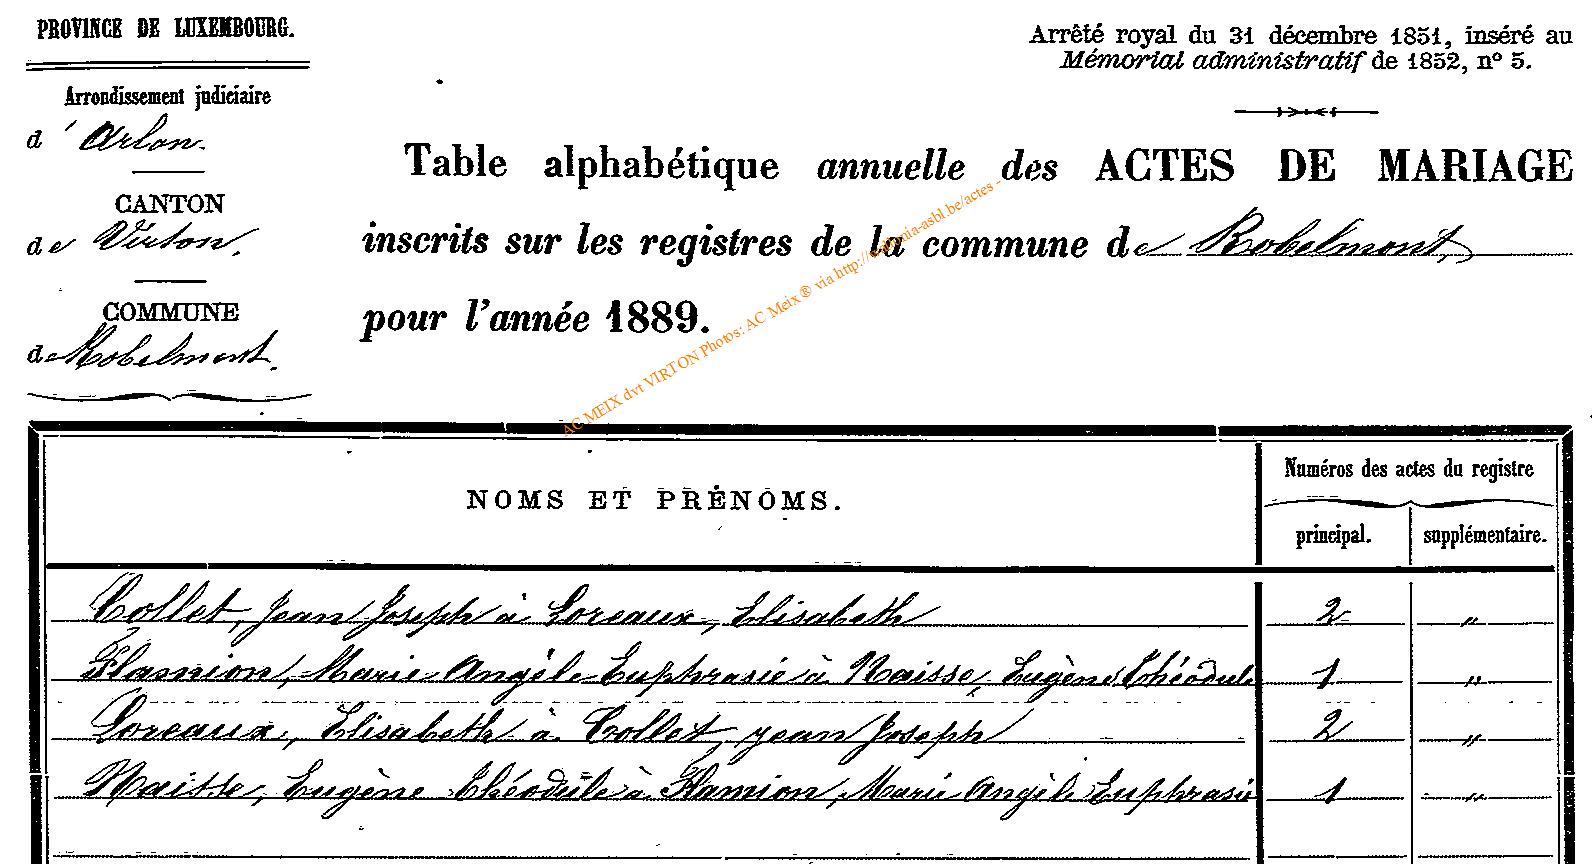 PROVINCE DE LUXEMBOURG.
Arrondissement judiciaire
d'Arlon.
CANTON
de Virton.
COMMUNE
de Robelmont.
Arrêté royal du 31 décembre 1851, inséré au
Mémorial administratif de 1852, nº 5.
Table alphabétique annuelle des ACTES DE MARIAGE
inscrits sur les registres de la commune de Robelmont,
pour l'année 1889.
AC MEIX dvt VIRTON Photos: AC Meix ® via http://-asbl.be/actes -
NOMS ET PRÉNOMS.
Numéros des actes du registre
principal. supplémentaire.
Collet, Jean Joseph à Loreaux, Elisabeth 2 "
Flamion, Marie Angèle Euphrasie à Naisse, Eugène Théodule 1 "
Loreaux, Elisabeth à Collet, Jean Joseph 2 "
Naisse, Eugène Théodule à Flamion, Marie Angèle Euphrasie 1 "